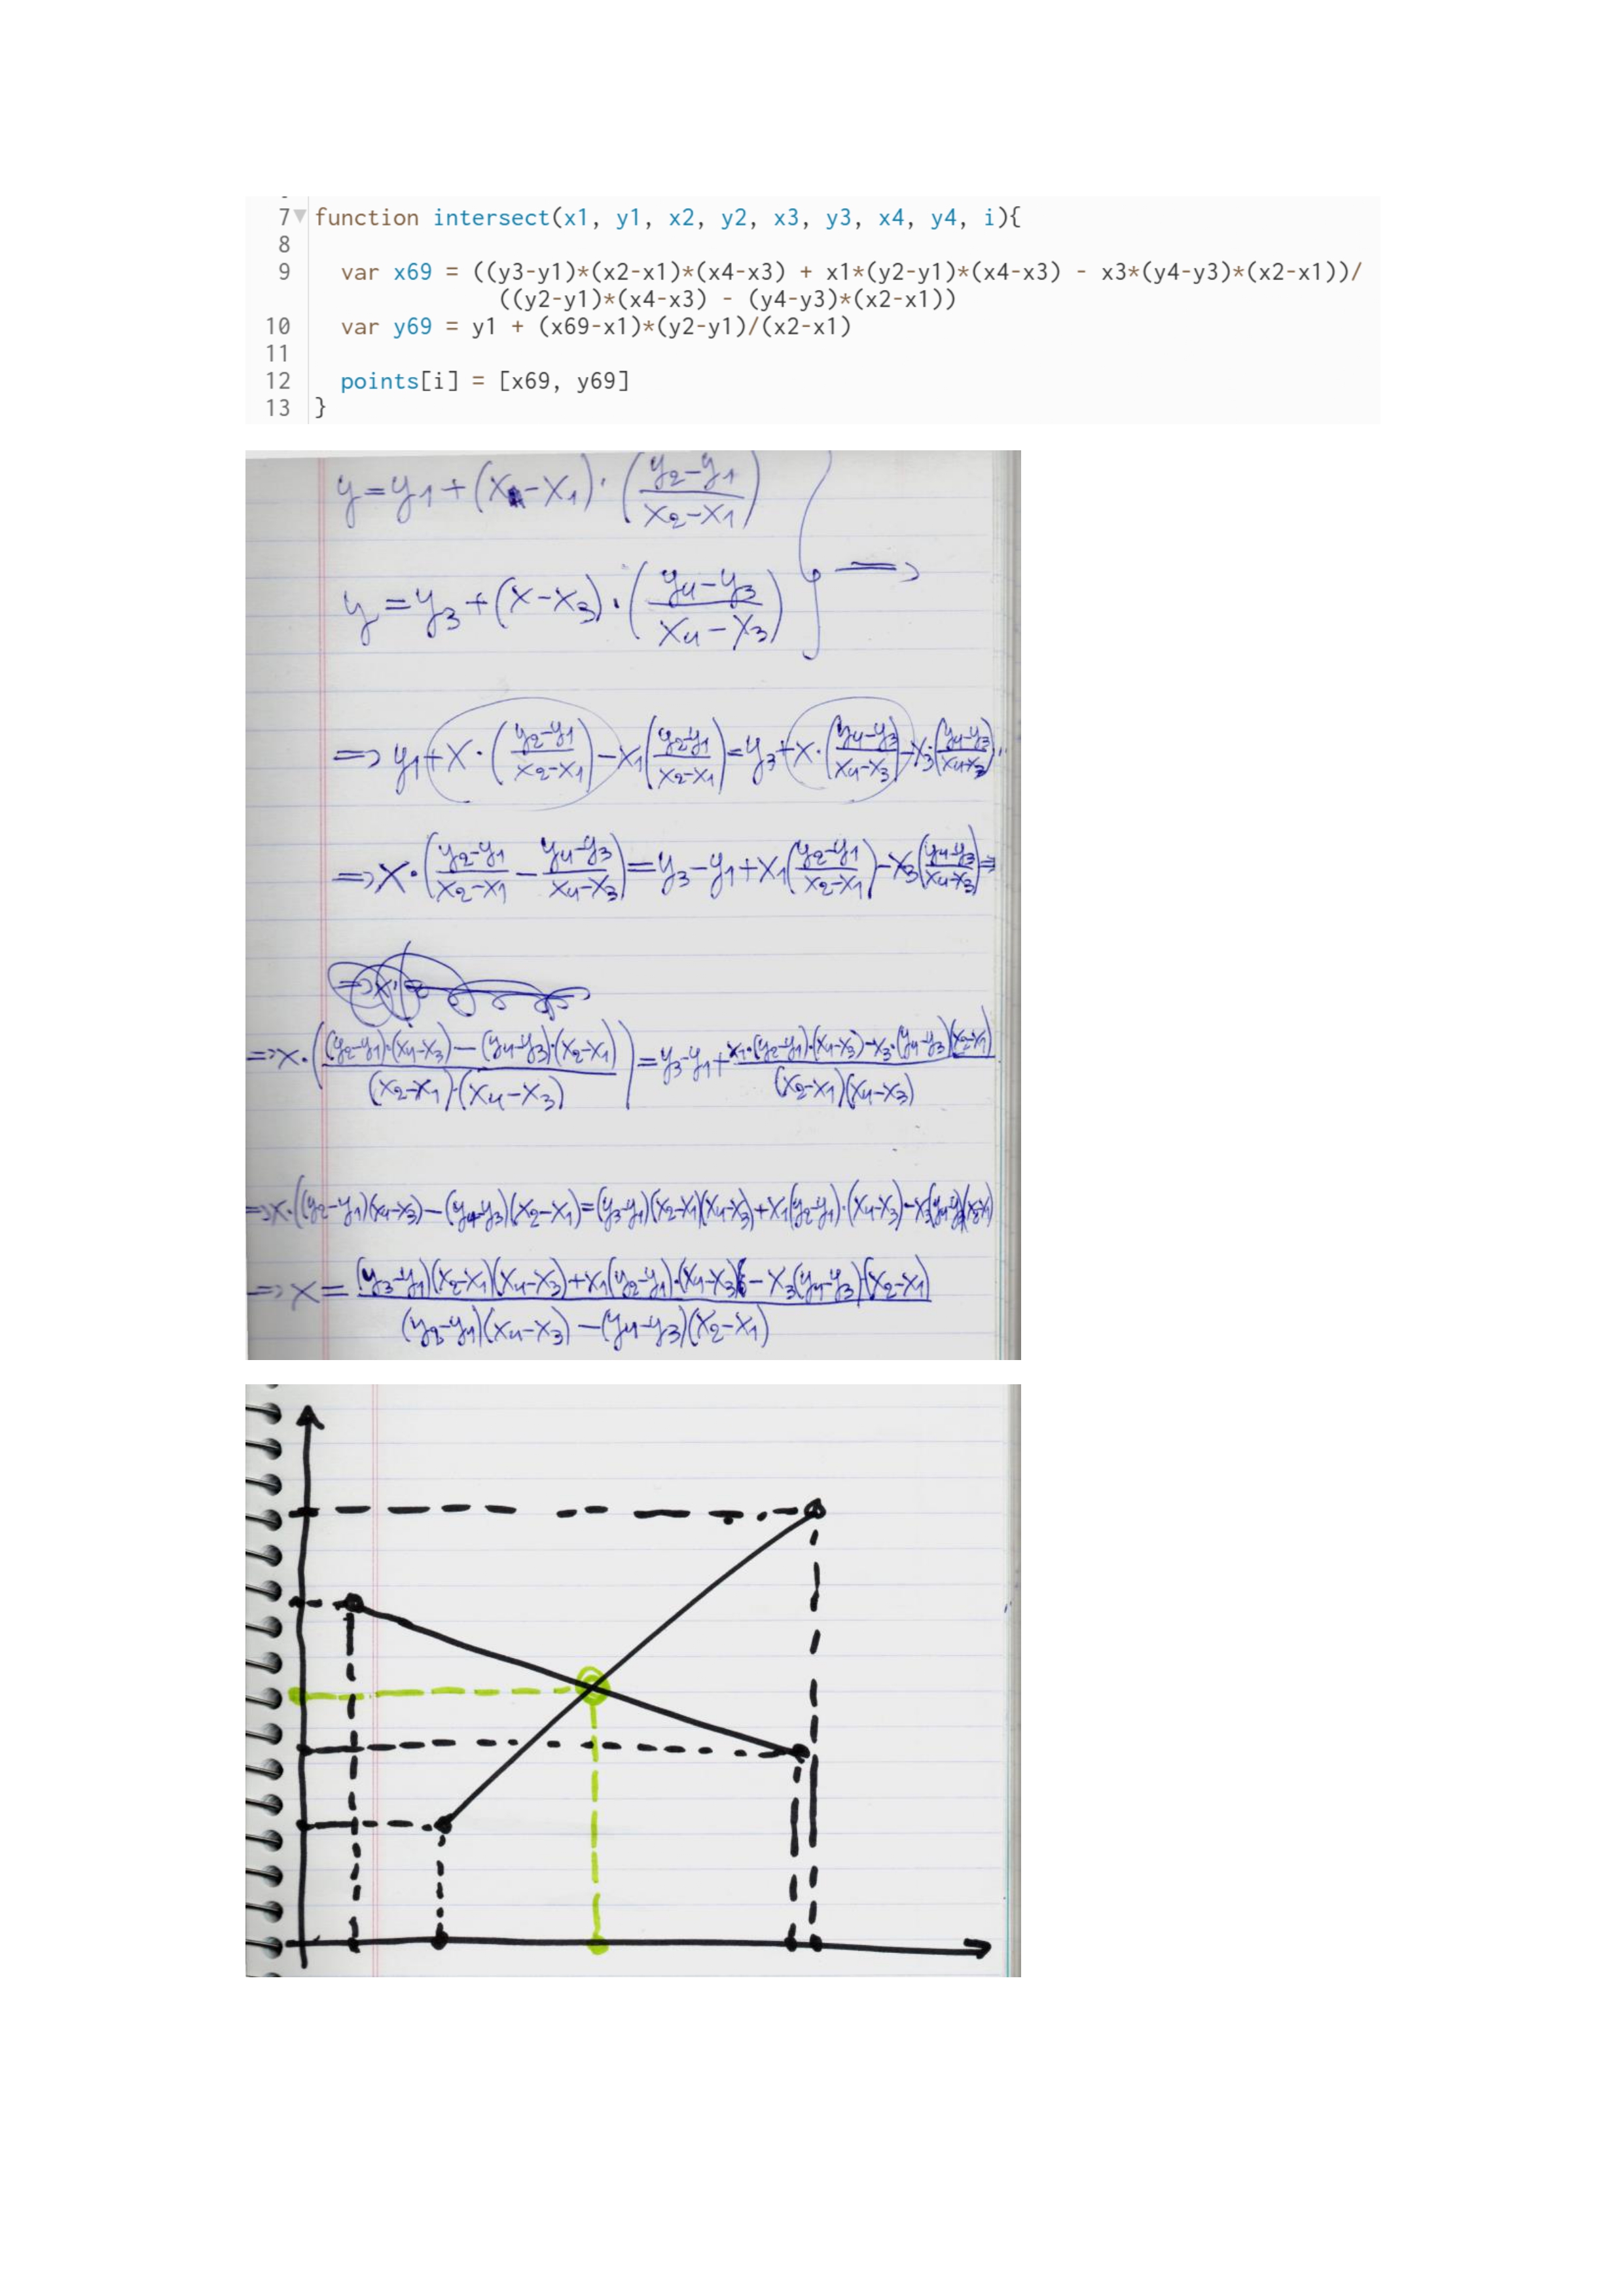 7 function intersect(x1, y1, x2, y2, x3, y3, x4, y4, i){
8
9 var x69 = ((y3-y1)*(x2-x1)*(x4-x3) + x1*(y2-y1)*(x4-x3) - x3*(y4-y3)*(x2-x1))/
((y2-y1)*(x4-x3) - (y4-y3)*(x2-x1))
10 var y69 = y1 + (x69-x1)*(y2-y1)/(x2-x1)
11
12 points[i] = [x69, y69]
13 }
y=y₁+(x-x₁)·((y₂-y₁)/(x₂-x₁))
y=y₃+(x-x₃)·((y₄-y₃)/(x₄-x₃)) } =>
=> y₁+x·((y₂-y₁)/(x₂-x₁))-x₁((y₂-y₁)/(x₂-x₁))=y₃+x·((y₄-y₃)/(x₄-x₃))-x₃·((y₄-y₃)/(x₄-x₃))
=> x·((y₂-y₁)/(x₂-x₁)-(y₄-y₃)/(x₄-x₃))=y₃-y₁+x₁((y₂-y₁)/(x₂-x₁))-x₃((y₄-y₃)/(x₄-x₃)) =>
=> x·(((y₂-y₁)·(x₄-x₃)-(y₄-y₃)·(x₂-x₁))/((x₂-x₁)·(x₄-x₃)))=y₃-y₁+(x₁·(y₂-y₁)·(x₄-x₃)-x₃·(y₄-y₃)(x₂-x₁))/((x₂-x₁)(x₄-x₃))
=> x·((y₂-y₁)(x₄-x₃)-(y₄-y₃)(x₂-x₁)=(y₃-y₁)(x₂-x₁)(x₄-x₃)+x₁(y₂-y₁)·(x₄-x₃)-x₃(y₄-y₃)(x₂-x₁)
=> x=((y₃-y₁)(x₂-x₁)(x₄-x₃)+x₁(y₂-y₁)·(x₄-x₃)-x₃(y₄-y₃)·(x₂-x₁))/((y₂-y₁)(x₄-x₃)-(y₄-y₃)(x₂-x₁))